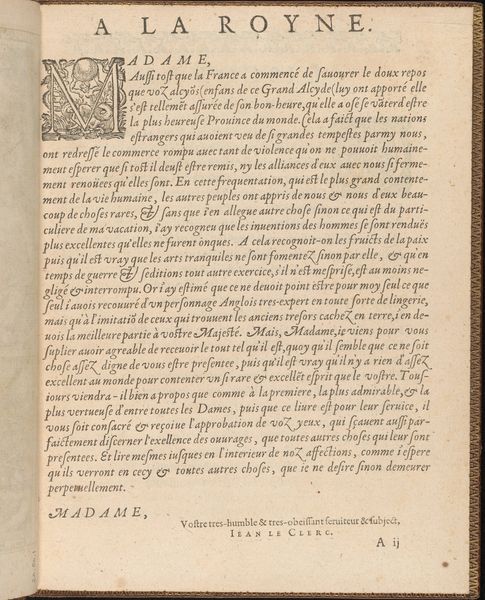 A LA ROYNE.
MADAME,
Aussi tost que la France a commencé de sauourer le doux repos
que voz alcyōs (enfans de ce Grand Alcyde) luy ont apporté elle
s'est tellemēt assurée de son bon-heure, qu'elle a ose se vāter d'estre
la plus heureuse Prouince du monde. Cela a faict que les nations
estrangers qui auoient veu de si grandes tempestes parmy nous,
ont redressé le commerce rompu auec tant de violence qu'on ne pouuoit humaine-
ment esperer que si tost il deust estre remis, ny les alliances d'eux auec nous si ferme-
ment renouées qu'elles sont. En cette frequentation, qui est le plus grand contente-
ment de la vie humaine, les autres peuples ont appris de nous & nous d'eux beau-
coup de choses rares, & sans que i'en allegue autre chose sinon ce qui est du parti-
culiere de ma vacation, i'ay recogneu que les inuentions des hommes se sont rendués
plus excellentes qu'elles ne furent onques. A cela recognoit-on les fruicts de la paix
puis qu'il est vray que les arts tranquiles ne sont fomentez sinon par elle, & qu'en
temps de guerre & seditions tout autre exercice, s'il n'est mesprisé, est au moins ne-
gligé & interrompu. Or i'ay estimé que ce ne deuoit point estre pour moy seul ce que
seul i'auois recouuré d'vn personnage Anglois tres-expert en toute sorte de lingerie,
mais qu'à l'imitatiō de ceux qui trouuent les anciens tresors cachez en terre, i'en de-
uois la meilleure partie à vostre Majesté. Mais, Madame, ie viens pour vous
suplier auoir agreable de receuoir le tout tel qu'il est, quoy qu'il semble que ce ne soit
chose assez digne de vous estre presentee, puis qu'il est vray qu'il n'y a rien d'assez
excellent au monde pour contenter vn si rare & excellēt esprit que le vostre. Tous-
iours viendra-il bien a propos que comme à la premiere, la plus admirable, & la
plus vertueuse d'entre toutes les Dames, puis que ce liure est pour leur seruice, il
vous soit consacré & reçoiue l'approbation de voz yeux, qui sçauent aussi par-
faictement discerner l'exellence des ouurages, que toutes autres choses qui leur sont
presentees. Et lire mesmes iusques en l'interieur de noz affections, comme i'espere
qu'ils verront en cecy & toutes autres choses, que ie ne desire sinon demeurer
perpetuellement.
MADAME,
Vostre tres-humble & tres-obeissant seruiteur & subject,
IEAN LE CLERC.
A ij